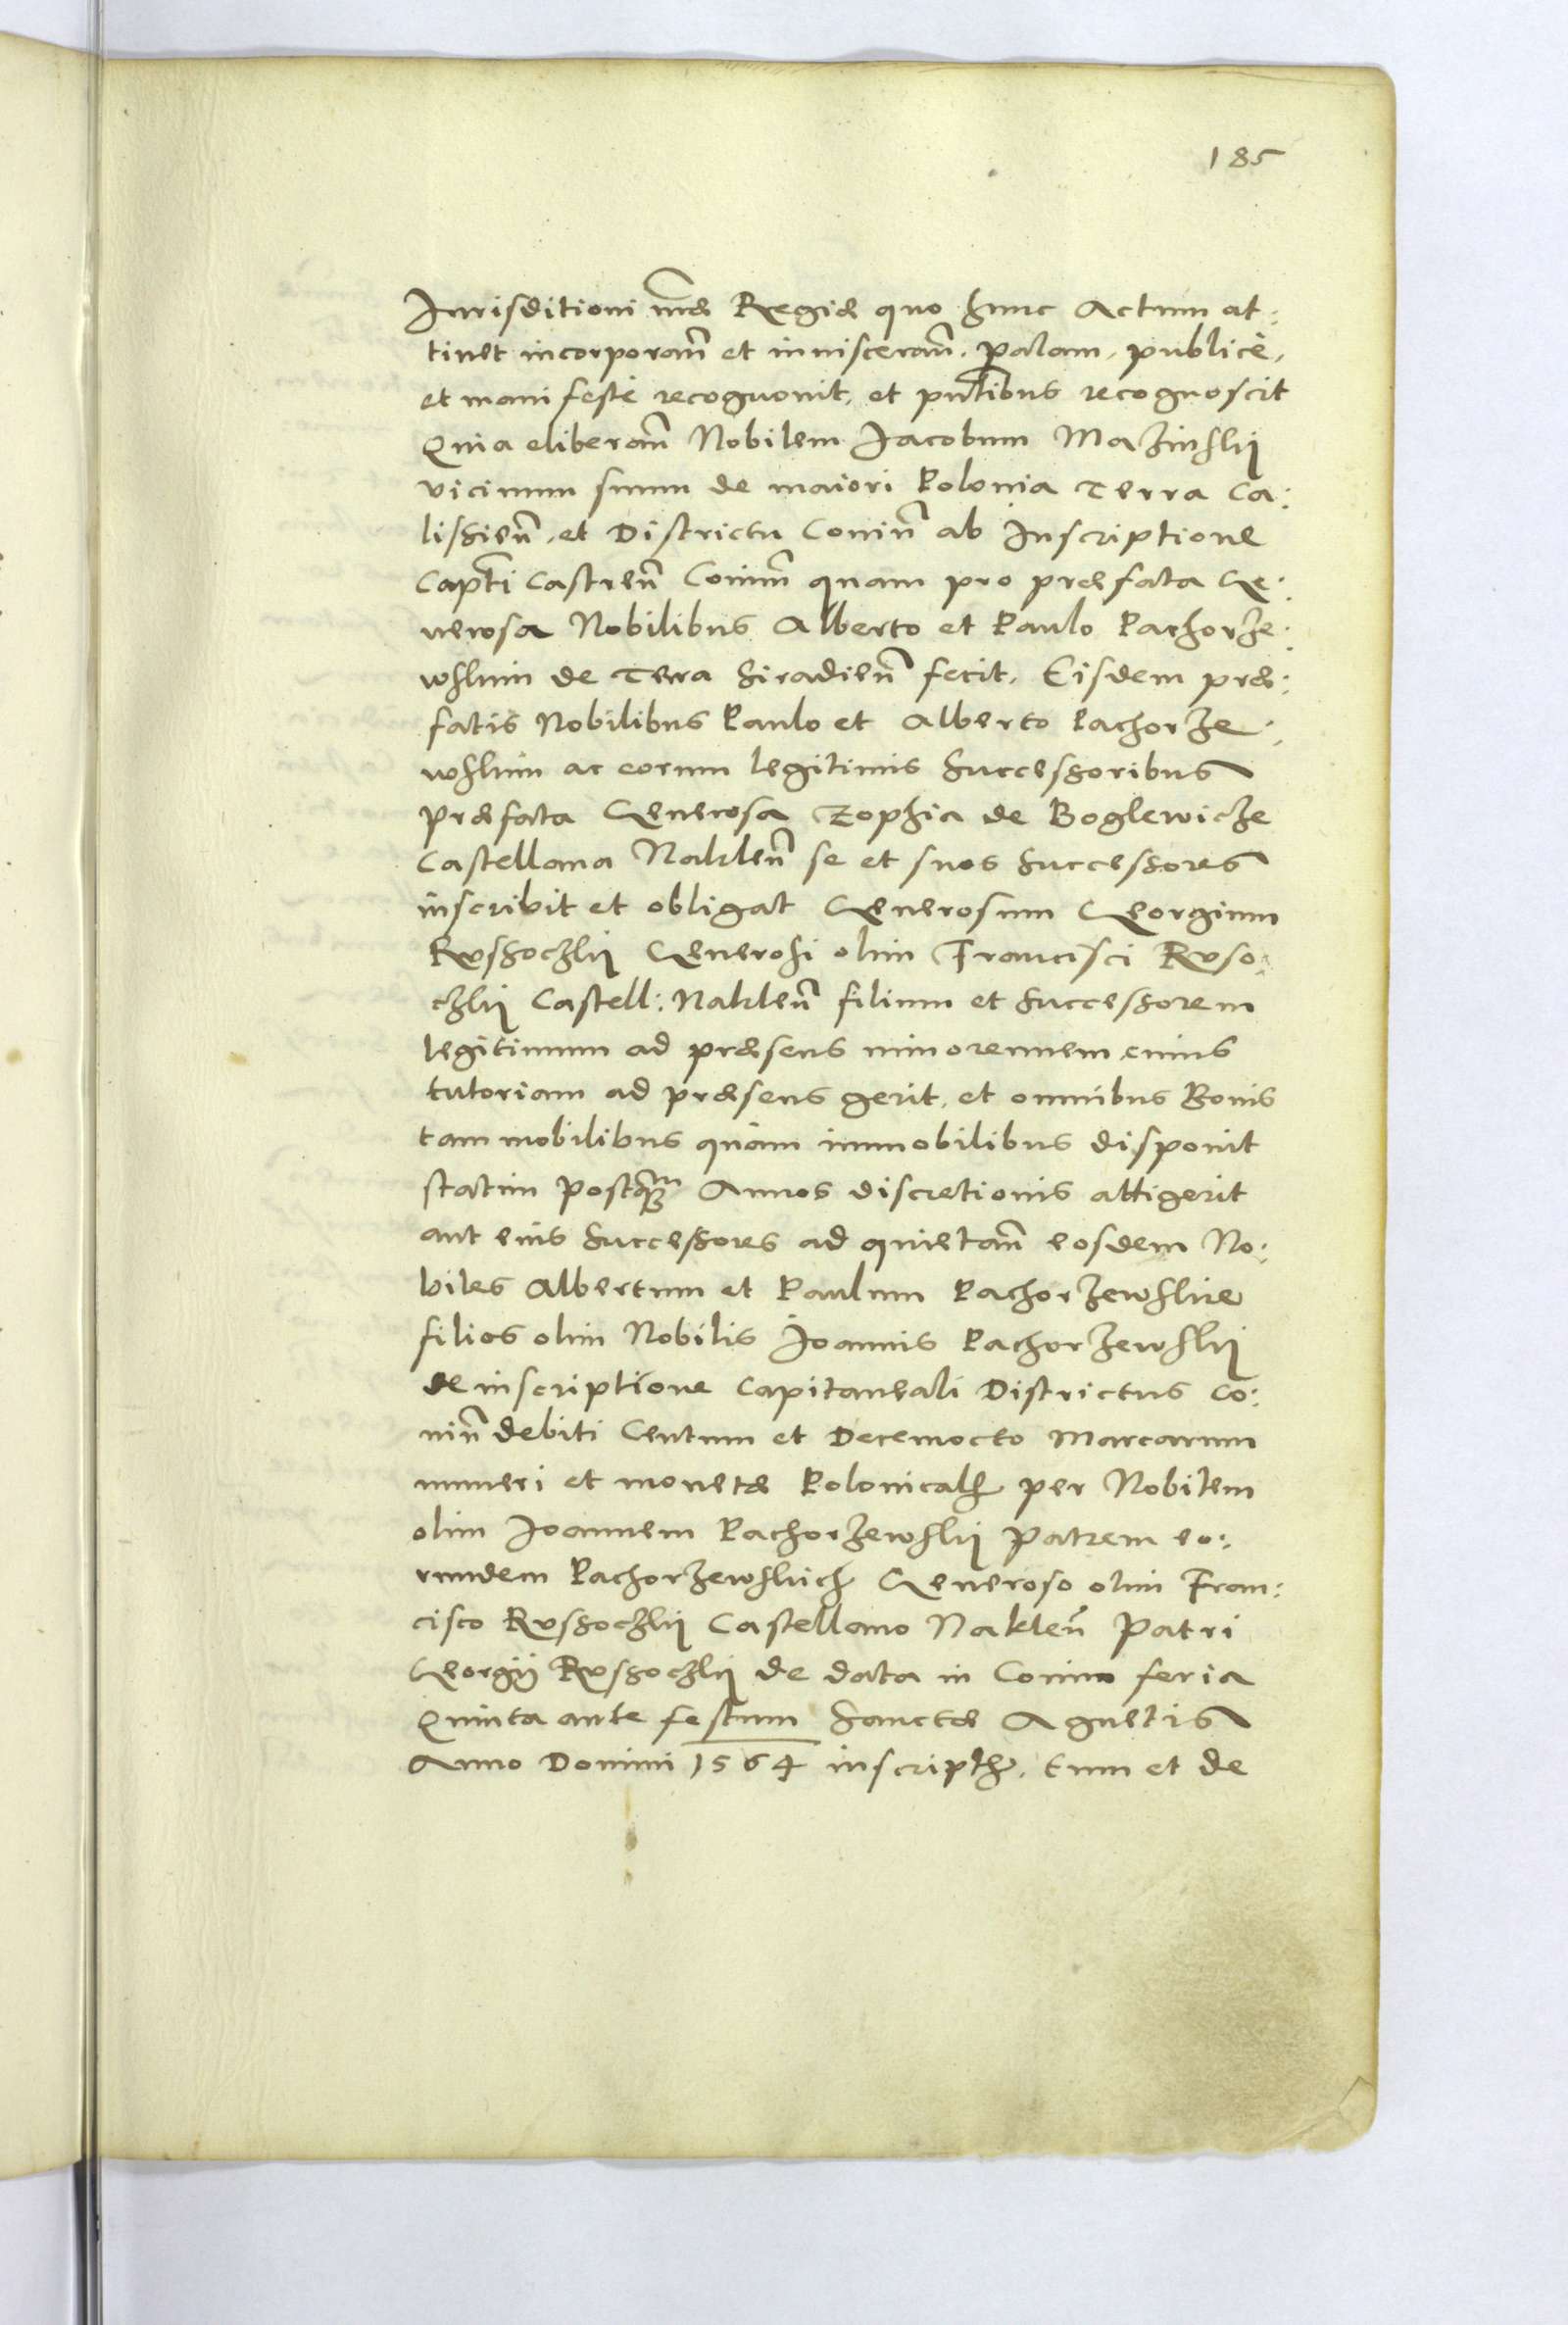 185
Jurisditioni mtis Regiæ quo hunc Actum at:
tinet incorporan̄ et inuisceran̄. palam, publicè,
et manifestè recognouit, et pn̄tibus recognoscit
Quia eliberan̄ Nobilem Jacobum Mazinskij
vicinum suum de maiori Polonia Terra Ca:
lissien̄. et Districtu Conin̄ ab Inscriptione
Capt̄i Castren̄ Conin̄ quam pro præfata Ge:
nerosa Nobilibus Alberto et Paulo Pachorze:
wskim de Terra Siradien̄ fecit. Eisdem præ:
fatis Nobilibus Paulo et Alberto Pachorze:
wskim ac eorum legitimis Successoribus
Præfata Generosa Zophia de Boglewicze
Castellana Naklen̄ se et suos Successores
inscribit et obligat Generosum Georgium
Russoczkij Generosi olim Francisci Ruso:
czkij Castell: Naklen̄ filium et Successorem
legitimum ad præsens minorennem cuius
tutoriam ad præsens gerit, et omnibus Bonis
tam mobilibus quàm immobilibus disponit
statim postqm̄ Annos discretionis attigerit
aut eius Successores ad quietan̄ eosdem No:
biles Albertum et Paulum Pachorzewskie
filios olim Nobilis Joannis Pachorzewskij
de inscriptione Capitaneali Districtus Co:
nin̄ debiti Centum et Decemocto Marcarum
numeri et monetæ Polonicalz per Nobilem
olim Joannem Pachorzewskij Patrem eo:
rundem Pachorzewskich Generoso olim Fran:
cisco Russoczkij Castellano Naklen̄ Patri
Georgij Russoczkij de data in Conino feria
Quinta ante festum Sanctæ Agnetis
Anno Domini 1564 inscriptz. Eum et de